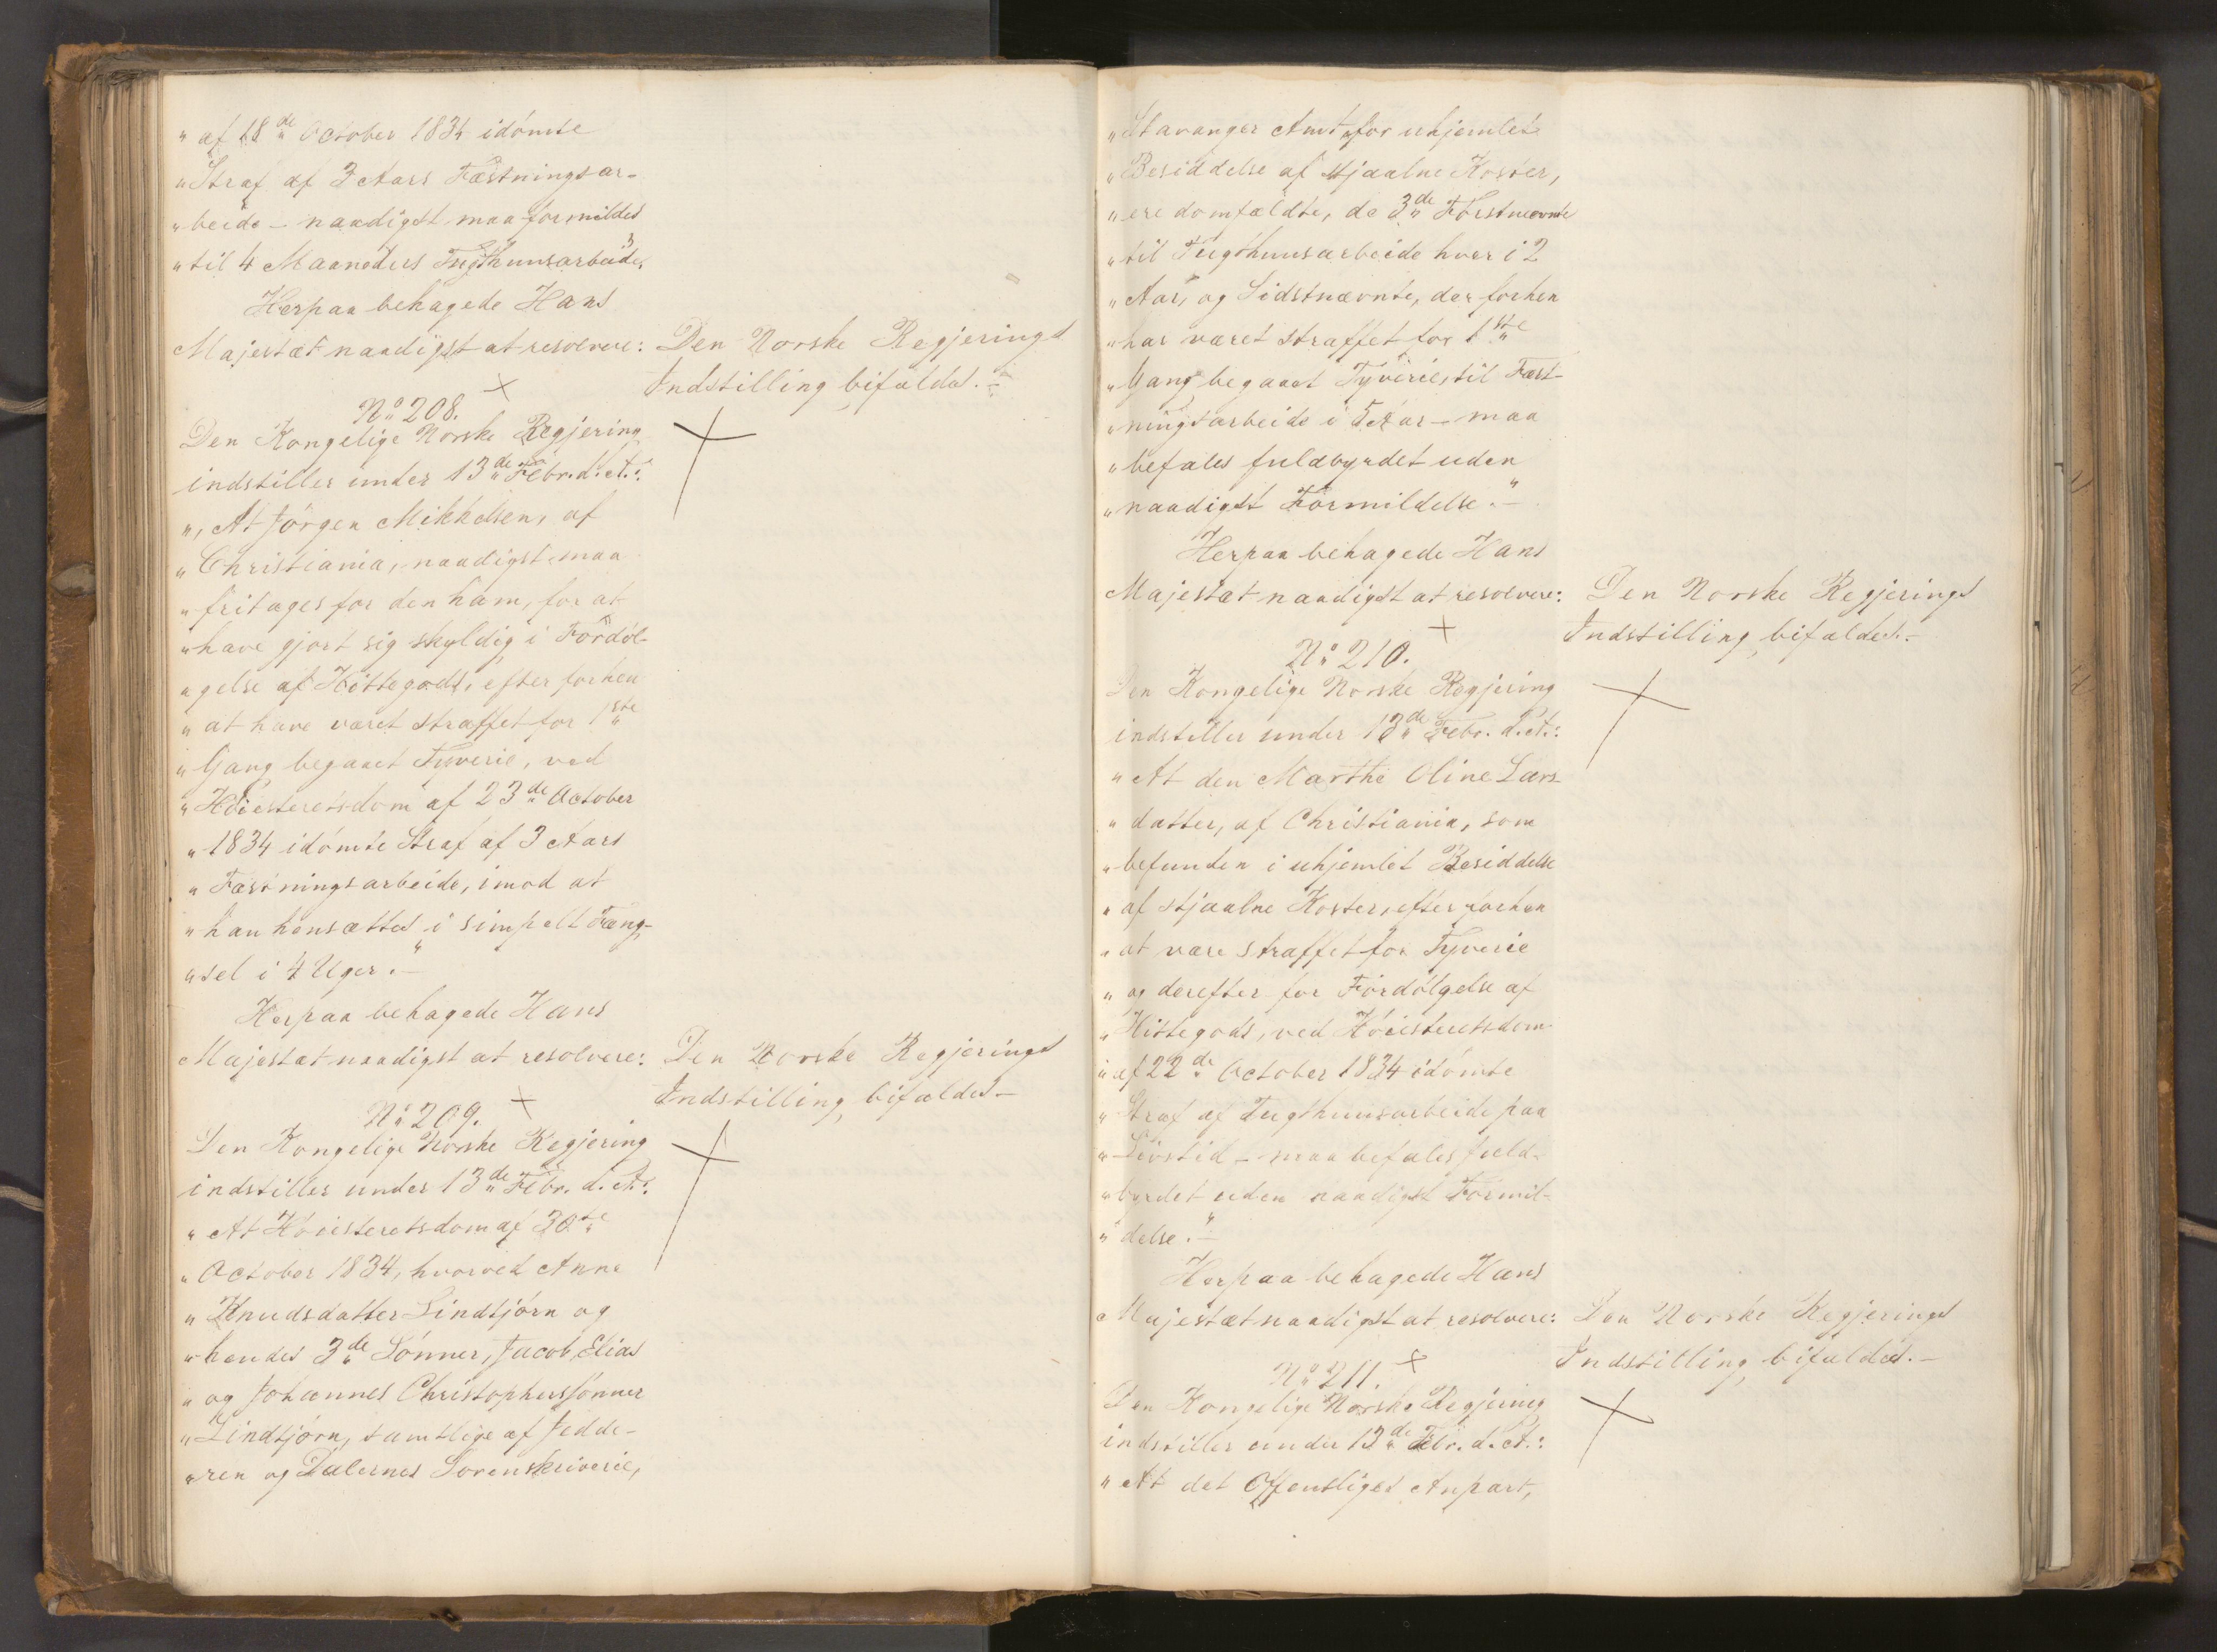 „ af 18de October 1834 idömte
„ Straf af 3 Aars Fæstningsar-
„ beide – naadigst maa formildes
„ til 4 Maaneders Tugthuusarbeide."
Herpaa behagede Hans
Majestæt naadigst at resolvere:
Den Norske Regjerings
Indstilling bifaldes.–
No 208.
Den Kongelige Norske Regjering
indstiller under 13de Febr. d. A.:
„ At Jörgen Mikkelsen, af
„ Christiania, naadigst maa
„ fritages for den ham, for at
„ have gjort sig skyldig i Fordöl-
„ gelse af Hittegods, efter forhen
„ at have været straffet for 1ste
„ Gang begaaet Tyverie, ved
„ Höiesteretsdom af 23de October
„ 1834 idömte Straf af 3 Aars
„ Fæstningsarbeide, imod at
„ han hensættes i simpelt Fæng-
„ sel i 4 Uger."–
Herpaa behagede Hans
Majestæt naadigst at resolvere:
Den Norske Regjerings
Indstilling bifaldes.–
No 209.
Den Kongelige Norske Regjering
indstiller under 13de Febr. d. A.:
„ At Höiesteretsdom af 30te
„ October 1834, hvorved Anna
„ Knudsdatter Lindtjörn og
„ hendes 3de Sönner, Jacob, Elias
„ og Johannes Christophersönner
„ Lindtjörn, samtlige af Jedde-
„ ren og Dalernes Sorenskriverie,
„ Stavanger Amt, for uhjemlet
„ Besiddelse af stjaalne Koster,
„ ere domfældte, de 3de Förstnævnte
„ til Tugthuusarbeide hver i 2
„ Aar, og Sidstnævnte, der forhen
„ har været straffet for 1ste
„ Gang begaaet Tyverie, til Fæst-
„ ningsarbeide i 5 Aar – maa
„ befales fuldbyrdet uden
„ naadigst Formildelse."–
Herpaa behagede Hans
Majestæt naadigst at resolvere:
Den Norske Regjerings
Indstilling bifaldes.–
No 210.
Den Kongelige Norske Regjering
indstiller under 13de Febr. d. A.:
„ At den Marthe Oline Lars-
„ datter, af Christiania, som
„ befunden i uhjemlet Besiddelse
„ af stjaalne Koster, efter forhen
„ at være straffet for Tyverie
„ og derefter for Fordölgelse af
„ Hittegods, ved Höiesteretsdom
„ af 22de October 1834 idömte
„ Straf af Tugthuusarbeide paa
„ Livstid – maa befales fuld-
„ byrdet uden naadigst Formil-
„ delse."–
Herpaa behagede Hans
Majestæt naadigst at resolvere:
Den Norske Regjerings
Indstilling bifaldes.–
No 211.
Den Kongelige Norske Regjering
indstiller under 13de Febr. d. A.:
„ At det Offentliges Anpart,